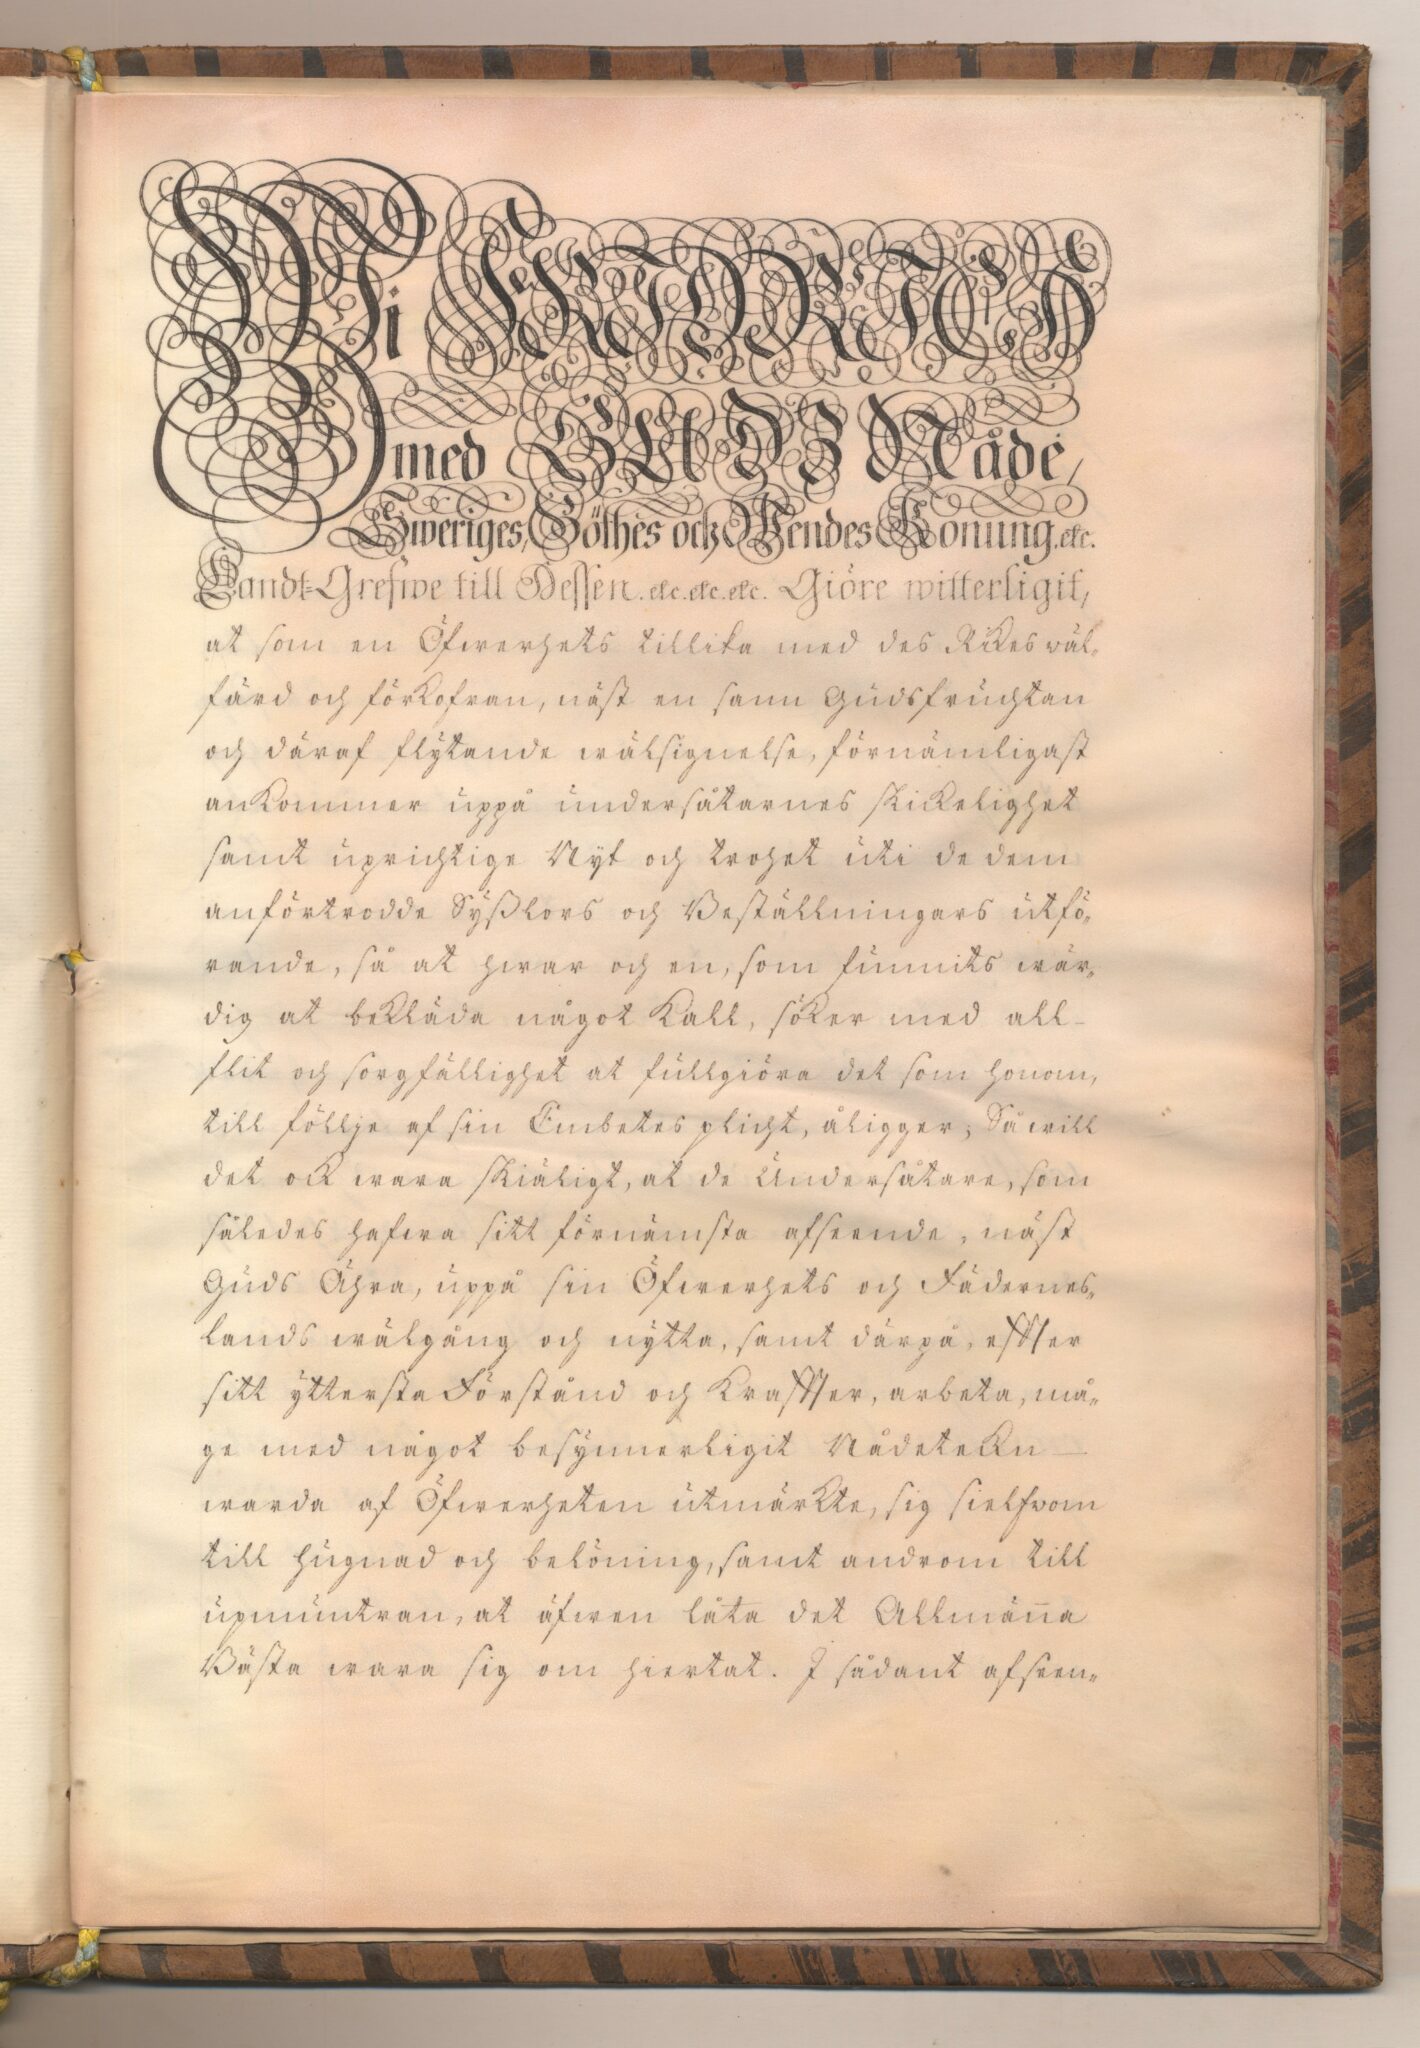 Wi FRIDRICH
med GUDZ Nåde,
Sweriges, Göthes och Wendes Konung .etc.
Landt-Grefwe till Hessen .etc.etc.etc. Giöre witterligit,
at som en Öfwerhets tillika med des Rikes wäl-
färd och förkofran, näst en sann Gudsfruchtan
och däraf flytande wälsignelse, förnämligast
ankommer uppå undersåtarnes skickelighet
samt uprichtige Nyt och trohet uti de dem
anförtrodde Syßlors och Beställningars utfö-
rande, så at hwar och en, som finnits wär-
dig at bekläda något kall, söker med all
flit och sorgfällighet at fullgiöra det som honom,
till föllje af sin Embetes plicht, åligger; Så will
det ock wara skiäligt, at de Undersåtare, som
således hafwa sitt förnämsta afseende, näst
Guds Ähra, uppå sin Öfwerhets och Fädernes-
lands wälgång och nytta, samt därpå, effter
sitt yttersta Förstånd och Kraffter, arbeta, må-
ge med något besynnerligit Nådetekn
warda af Öfwerheten utmärkte, sig sielfwom
till hugnad och belöning, samt androm till
upmuntran, at äfwen låta det Allmänna
Bästa wara sig om hiertat. I sådant afseen-